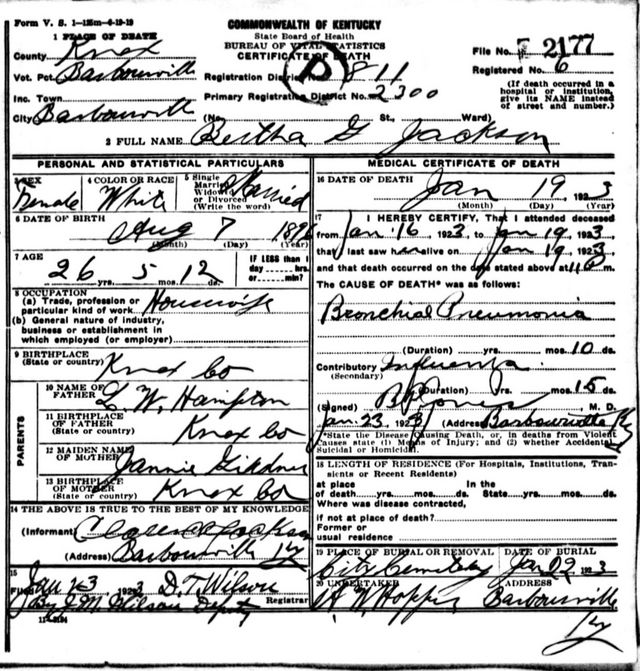 Form V. S. 1-125m-6-19-19
COMMONWEALTH OF KENTUCKY
State Board of Health
BUREAU OF VITAL STATISTICS
CERTIFICATE OF DEATH
1 PLACE OF DEATH
County Knox
File No. F 2177
Vot. Pct. Barbourville
Registration District No. 811
Registered No. 6
Inc. Town
Primary Registration District No. 2300
(If death occurred in a hospital or institution, give its NAME instead of street and number.)
City Barbourville (No. St., Ward)
D
2 FULL NAME Bertha G Jackson
PERSONAL AND STATISTICAL PARTICULARS
3 SEX Female
4 COLOR OR RACE White
5 Single Married Widowed or Divorced (Write the word) Married
6 DATE OF BIRTH Aug 7 189
(Month) (Day) (Year)
7 AGE 26 yrs. 5 mos. 12 ds.
IF LESS than 1 day ---- hrs. or ---- min?
8 OCCUPATION
(a) Trade, profession or particular kind of work Housewife
(b) General nature of industry, business or establishment in which employed (or employer)
9 BIRTHPLACE
(State or country) Knox Co
PARENTS
10 NAME OF FATHER L. W. Hampton
11 BIRTHPLACE OF FATHER (State or country) Knox Co
12 MAIDEN NAME OF MOTHER
13 BIRTHPLACE OF MOTHER (State or country) Knox Co
14 THE ABOVE IS TRUE TO THE BEST OF MY KNOWLEDGE
(Informant) Jackson
(Address) Barbourville Ky
15
Filed Jan 23, 1923 D. T. Wilson
Registrar
By J. M. Wilson Deputy
11-3184
MEDICAL CERTIFICATE OF DEATH
16 DATE OF DEATH Jan 19 1923
(Month) (Day) (Year)
17 I HEREBY CERTIFY, That I attended deceased
from Jan 16 1923, to Jan 19 1923,
that I last saw h alive on Jan 19, 1923,
and that death occurred on the date stated above at m.
The CAUSE OF DEATH* was as follows:
Bronchial Pneumonia
(Duration) yrs. mos. 10 ds.
Contributory Influenza
(Secondary)
(Duration) yrs. mos. 15 ds.
(Signed) Jones M. D.
Jan 23, 1923 (Address) Barbourville Ky
*State the Disease Causing Death, or, in deaths from Violent Causes state (1) Means of Injury; and (2) whether Accidental, Suicidal or Homicidal.
18 LENGTH OF RESIDENCE (For Hospitals, Institutions, Transients or Recent Residents)
At place of death yrs. mos. ds. In the State yrs. mos. ds.
Where was disease contracted,
if not at place of death?
Former or usual residence
19 PLACE OF BURIAL OR REMOVAL City Cemetery
DATE OF BURIAL Jan 1923
20 UNDERTAKER A. W. Hopper
ADDRESS Barbourville
Ky